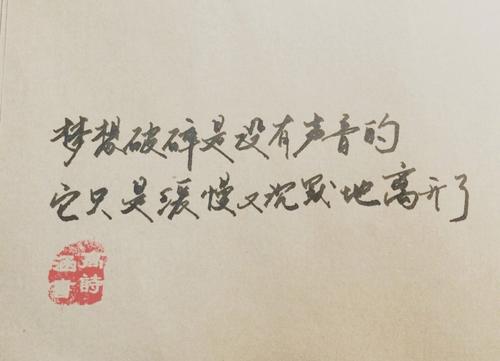 梦想破碎是没有声音的
它只是缓慢又沉默地离开了